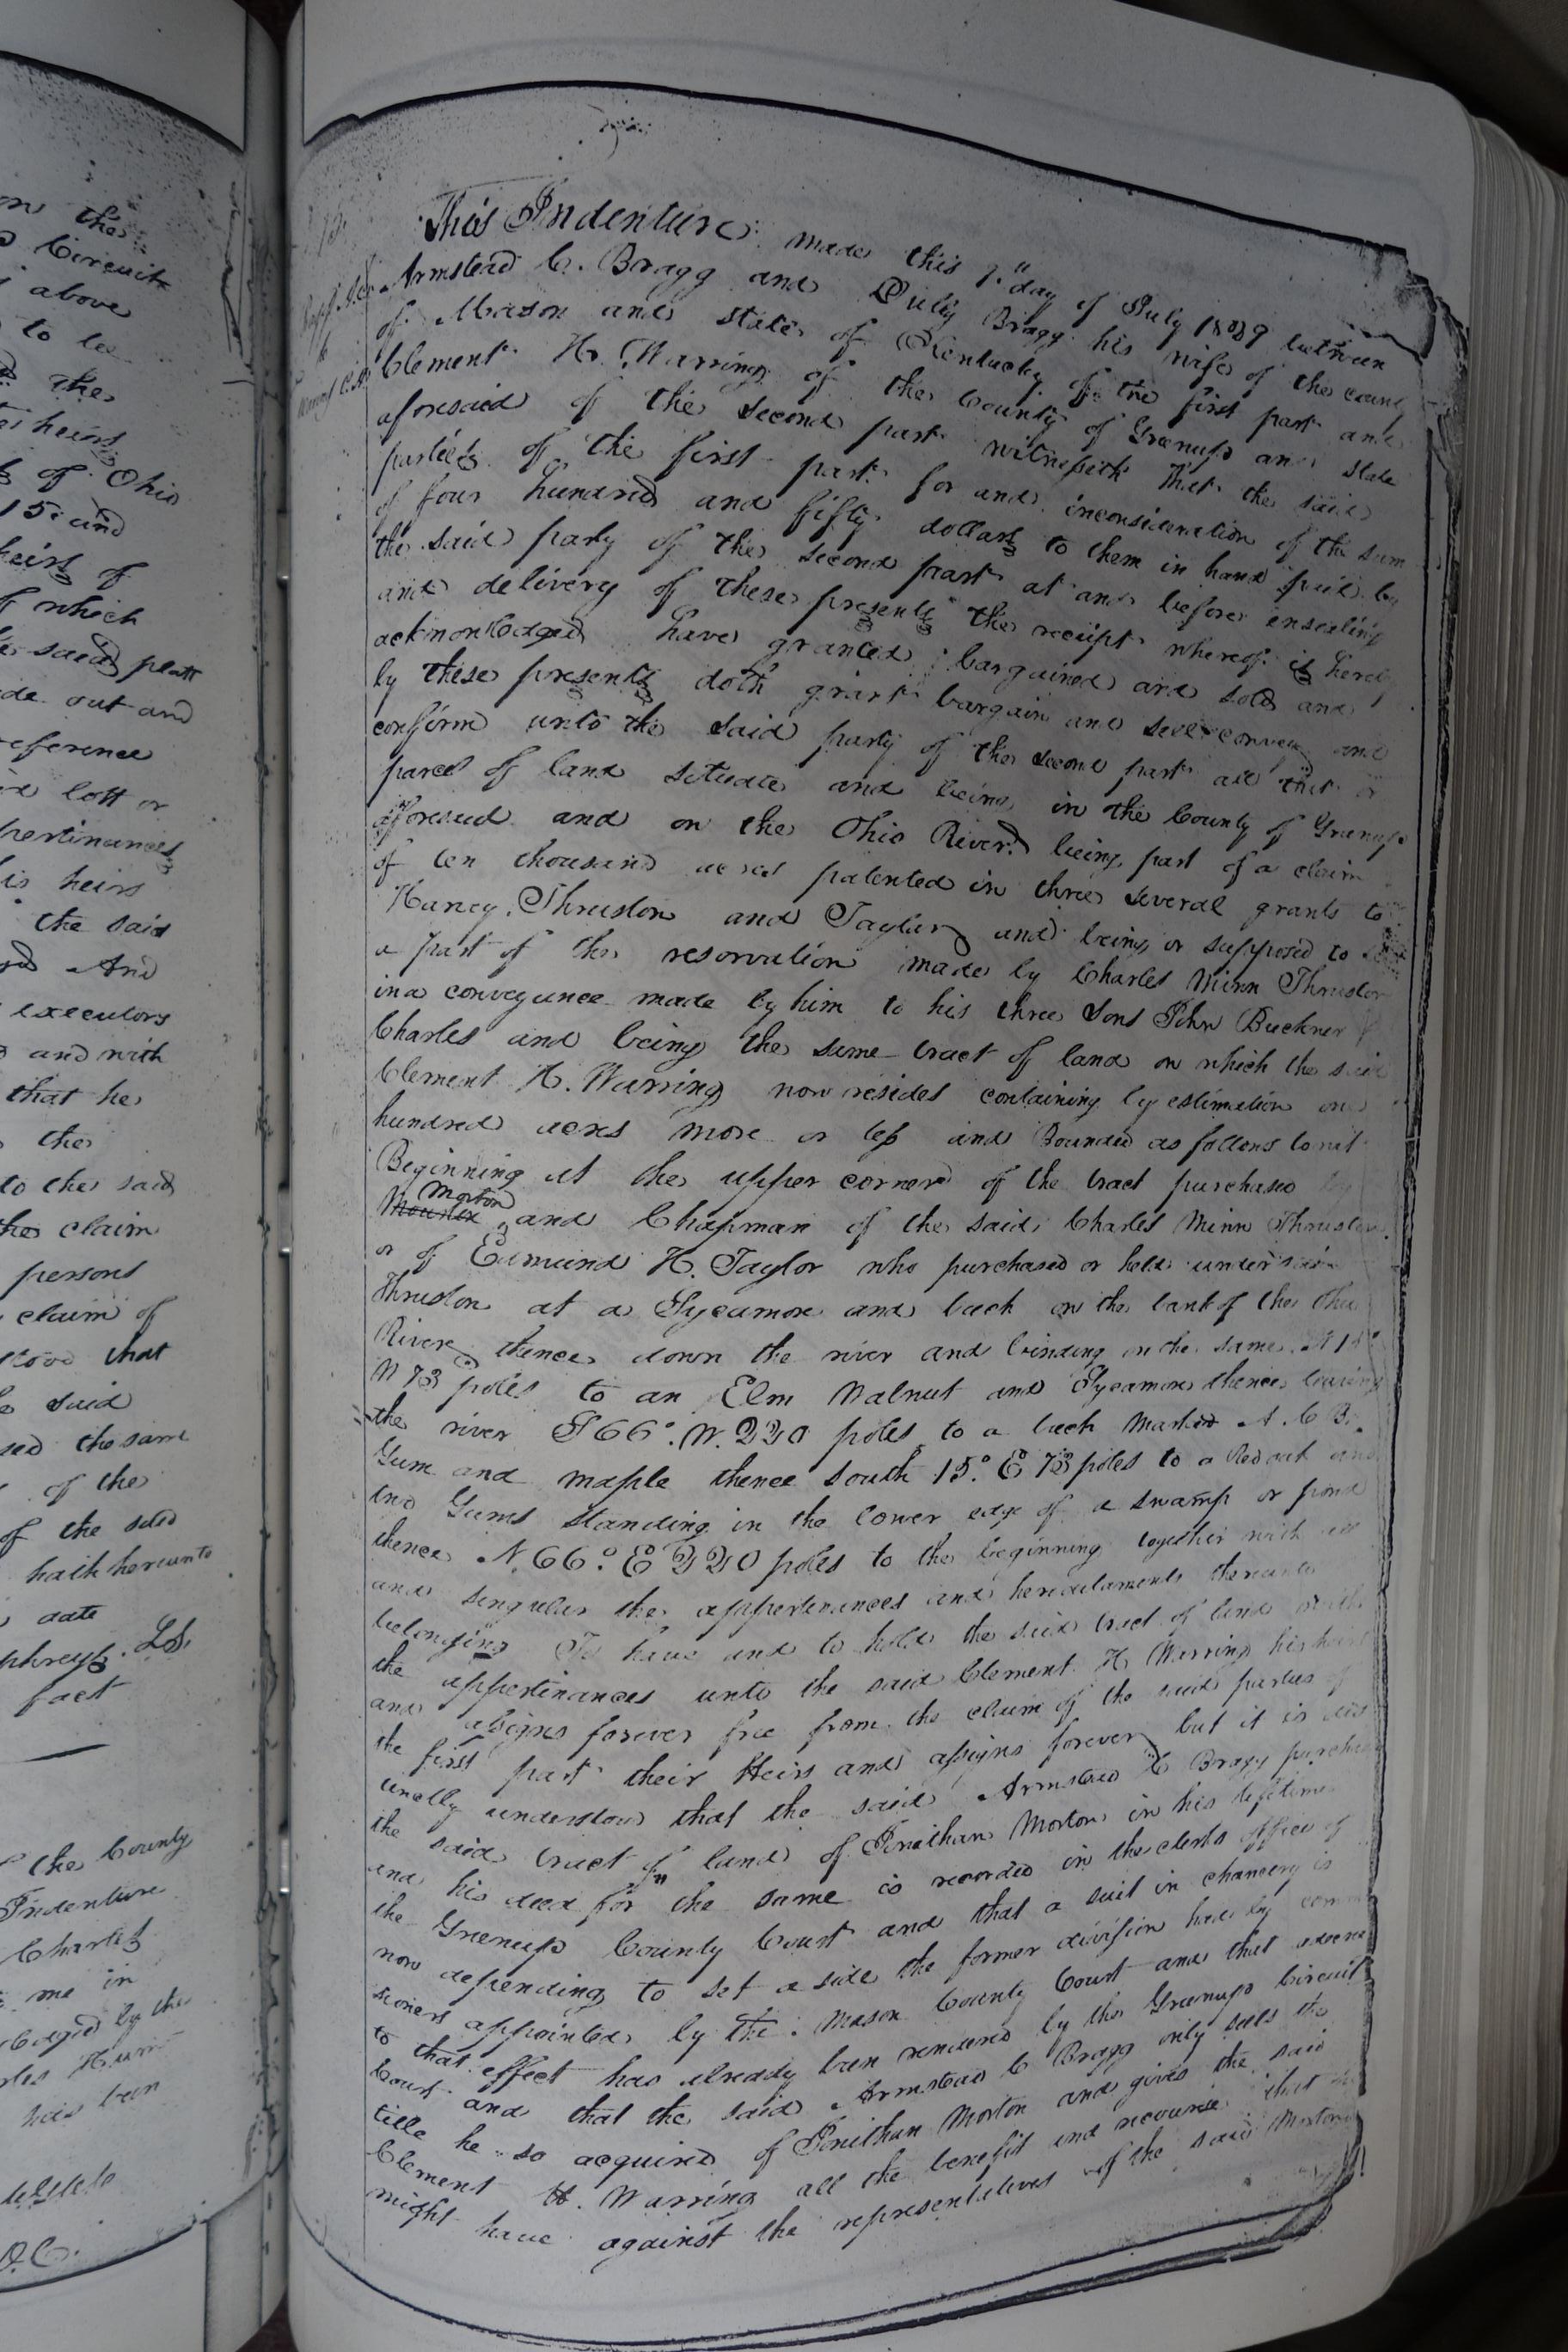 on the
Circuit
above
to be
the
heirs
of Ohio
15 and
heirs of
of which
said platt
de out and
reference
lott or
pertinances
his heirs
the said
And
executors
and with
that he
the
to the said
the claim
persons
claim of
stood that
said
sed the same
of the
of the said
hath hereunto
date
phreys. LS.
fact
the County
Indenture
Charles
me in
edged by the
has been
This Indenture made this day of July 1829 between
Armstead C. Bragg and Bragg his wife of the county
of Mason and state of Kentucky of the first part and
Clement H. Warring of the County of Greenup and State
aforesaid of the second part witnesseth that the said
parties of the first part for and inconsideration of the sum
of four hundred and fifty dollars to them in hand paid by
the said party of the second part at and before ensealing
and delivery of these presents the receipt whereof is hereby
acknowledged have granted bargained and sold and
by these presents doth grant bargain and sell convey and
confirm unto the said party of the second part all that or
parcel of land situate and being in the County of Greenup
aforesaid and on the Ohio River being part of a claim
of ten thousand acres patented in three several grants to
Harvey, Thruston and Taylor and being or supposed to be
a part of the reservation made by Charles Minn Thruston
in a conveyance made by him to his three Sons John Buckner &
Charles and being the same tract of land on which the said
Clement H. Warring now resides containing by estimation one
hundred acres more or less and Bounded as follows to wit
Beginning at the upper corner of the tract purchased by
Morton
and Chapman of the said Charles Minn Thruston
or of Edmund H. Taylor who purchased or held under said
Thruston at a Sycamore and beech on the bank of the Ohio
River thence down the river and binding on the same N 15°
W 73 poles to an Elm Walnut and Sycamore thence leaving
the river S 66°. W. 220 poles to a beech marked A. C B.
Gum and maple thence south 15.° E 73 poles to a Red oak and
two Gums standing in the lower edge of a swamp or pond
thence N. 66.° E 220 poles to the beginning together with all
and singular the appertenances and heredataments thereunto
belonging To have and to hold the said tract of land with
the appertinances unto the said Clement H. Warring his heirs
and assigns forever free from the claim of the said parties of
the first part their Heirs and assigns forever but it is dis
tinctly understood that the said Armstead C Bragg purchased
the said tract of land of Jonathan Morton in his lifetime
and his deed for the same is recorded in the clerks office of
the Greenup County Court and that a suit in chancery is
now depending to set a side the former division had by commi
sioners appointed by the Mason County Court and that a decree
to that effect has already been rendered by the Greenup Circuit
Court and that the said Armstead C Bragg only sells the
title he so acquired of Jonathan Morton and gives the said
Clement H. Warring all the benefit and recourse that he
might have against the representatives of the said Morton